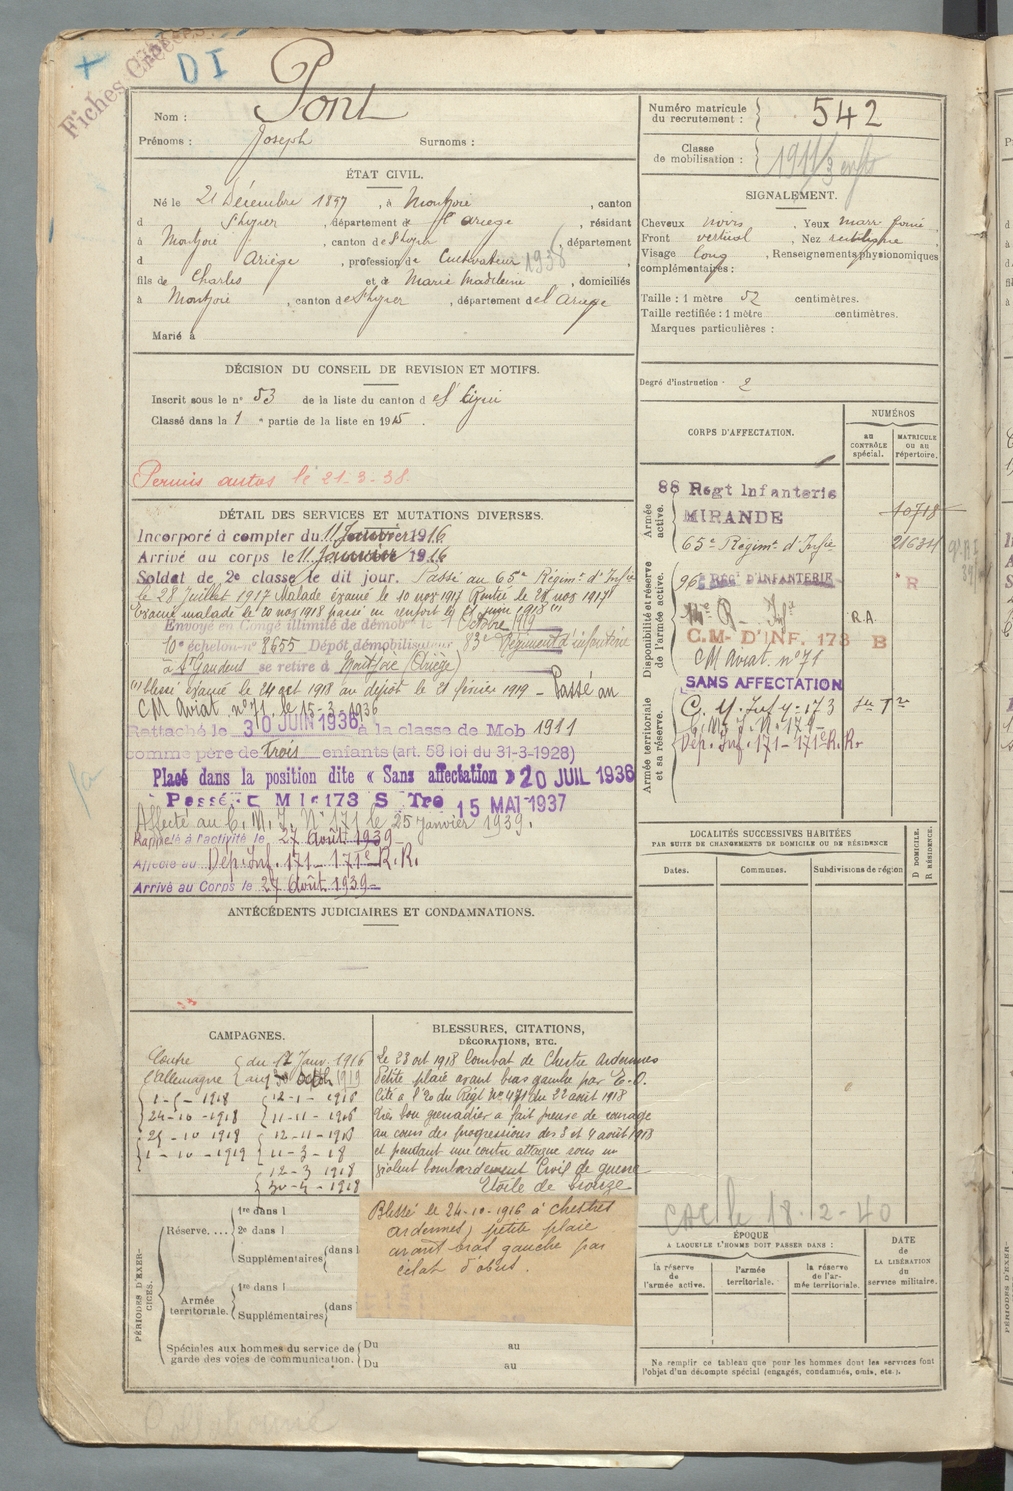 Fiches Créées
DI
Nom : Pont
Prénoms : Joseph Surnoms :
ÉTAT CIVIL.
Né le 21 Décembre 1897, à Montjoie, canton
d St Lizier, département de l'Ariège, résidant
à Montjoie, canton de St Lizier, département
d Ariège, profession de Cultivateur 1938
fils de Charles et de Marie Madeleine, domiciliés
à Montjoie, canton de St Lizier, département de l'Ariège
Marié à
DÉCISION DU CONSEIL DE REVISION ET MOTIFS.
Inscrit sous le n° 53 de la liste du canton d
Classé dans la 1e partie de la liste en 1915.
Permis autos le 21-3-38.
DÉTAIL DES SERVICES ET MUTATIONS DIVERSES.
Incorporé à compter du 11 Janvier 1916
Arrivé au corps le 11 Janvier 1916
Soldat de 2e classe le dit jour. Passé au 65e Régimt d'Infie
le 28 Juillet 1917 Malade évacué le 10 nov 1917 Rentré le 28 nov 1917
Evacué malade le 20 1918 passé en renfort le 21 juin 1918 (1)
Envoyé en Congé illimité de démob le 1 Octobre 1919
10e échelon n° 8655 Dépôt démobilisateur 83e Régiment d'infanterie
à St Gaudens se retire à Montjoie (Ariège)
(1) blessé évacué le 24 oct 1918 au dépôt le 21 février 1919 - Passé au
CM Aviat. n° 71, le 15-3-1936
Rattaché le 30 JUIN 1936 à la classe de Mob 1911
comme père de trois enfants (art. 58 loi du 31-3-1928)
Placé dans la position dite « Sans affectation » 20 JUIL 1936
Passé C M I 173 S Tre 15 MAI 1937
Affecté au C. M. I. N° 171 le 25 janvier 1939.
Rappelé à l'activité le 27 Août 1939
Affecté au Dép. Inf. 171 - 171e R.R.
Arrivé au Corps le 27 Août 1939
ANTÉCÉDENTS JUDICIAIRES ET CONDAMNATIONS.
CAMPAGNES.
Contre du 12 Janv. 1916
l'allemagne au 30 1919
1-5-1918 12-1-1916
24-10-1918 11-11-1916
25-10-1918
1-10-1919 11-3-18
12-3-1918
30-4-1918
BLESSURES, CITATIONS,
DÉCORATIONS, ETC.
Le 23 oct 1918 Combat de Chestre Ardennes
Petite plaie avant bras gauche par E.O.
Cité à l'Eo du Régt N° 471 du 22 août 1918
très bon grenadier a fait preuve de courage
au cours des progressions des 3 et 4 août 1918
et pendant une contre attaque sous un
violent bombardement Croix de guerre
Etoile de bronze
Blessé le 24-10-1916 à Chestres
ardennes, petite plaie
avant bras gauche par
éclat d'obus.
PÉRIODES D'EXERCICES.
Réserve....
1re dans l
2e dans l
Supplémentaires dans l
Armée territoriale.
1re dans l
Supplémentaires dans
Spéciales aux hommes du service de garde des voies de communication.
Du au
Du au
Numéro matricule du recrutement : 542
Classe de mobilisation : 1911/3 enfts
SIGNALEMENT.
Cheveux noirs, Yeux marr foncé,
Front vertical, Nez rectiligne,
Visage long, Renseignements physionomiques
complémentaires :
Taille : 1 mètre 52 centimètres.
Taille rectifiée : 1 mètre centimètres.
Marques particulières :
Degré d'instruction - 2
CORPS D'AFFECTATION.
NUMÉROS
au CONTRÔLE spécial.
MATRICULE ou au répertoire.
Armée active.
88 Regt Infanterie
MIRANDE 10718
65e Régimt d'Infie 21634
Disponibilité et réserve de l'armée active.
96e REGt D'INFANTERIE R
R.A.
C.M- D'INF. 173 B
CM Aviat. n° 71
SANS AFFECTATION
Armée territoriale et sa réserve.
C. M. Inf 173
C. M. I. N. 171
Dép. Inf. 171 - 171e R.R.
LOCALITÉS SUCCESSIVES HABITÉES
PAR SUITE DE CHANGEMENTS DE DOMICILE OU DE RÉSIDENCE
Dates.
Communes.
Subdivisions de région
D DOMICILE.
R RÉSIDENCE.
le 18-12-40
ÉPOQUE
A LAQUELLE L'HOMME DOIT PASSER DANS :
la réserve de l'armée active.
l'armée territoriale.
la réserve de l'armée territoriale.
DATE de LA LIBÉRATION du service militaire.
Ne remplir ce tableau que pour les hommes dont les services font
l'objet d'un décompte spécial (engagés, condamnés, omis, etc.).